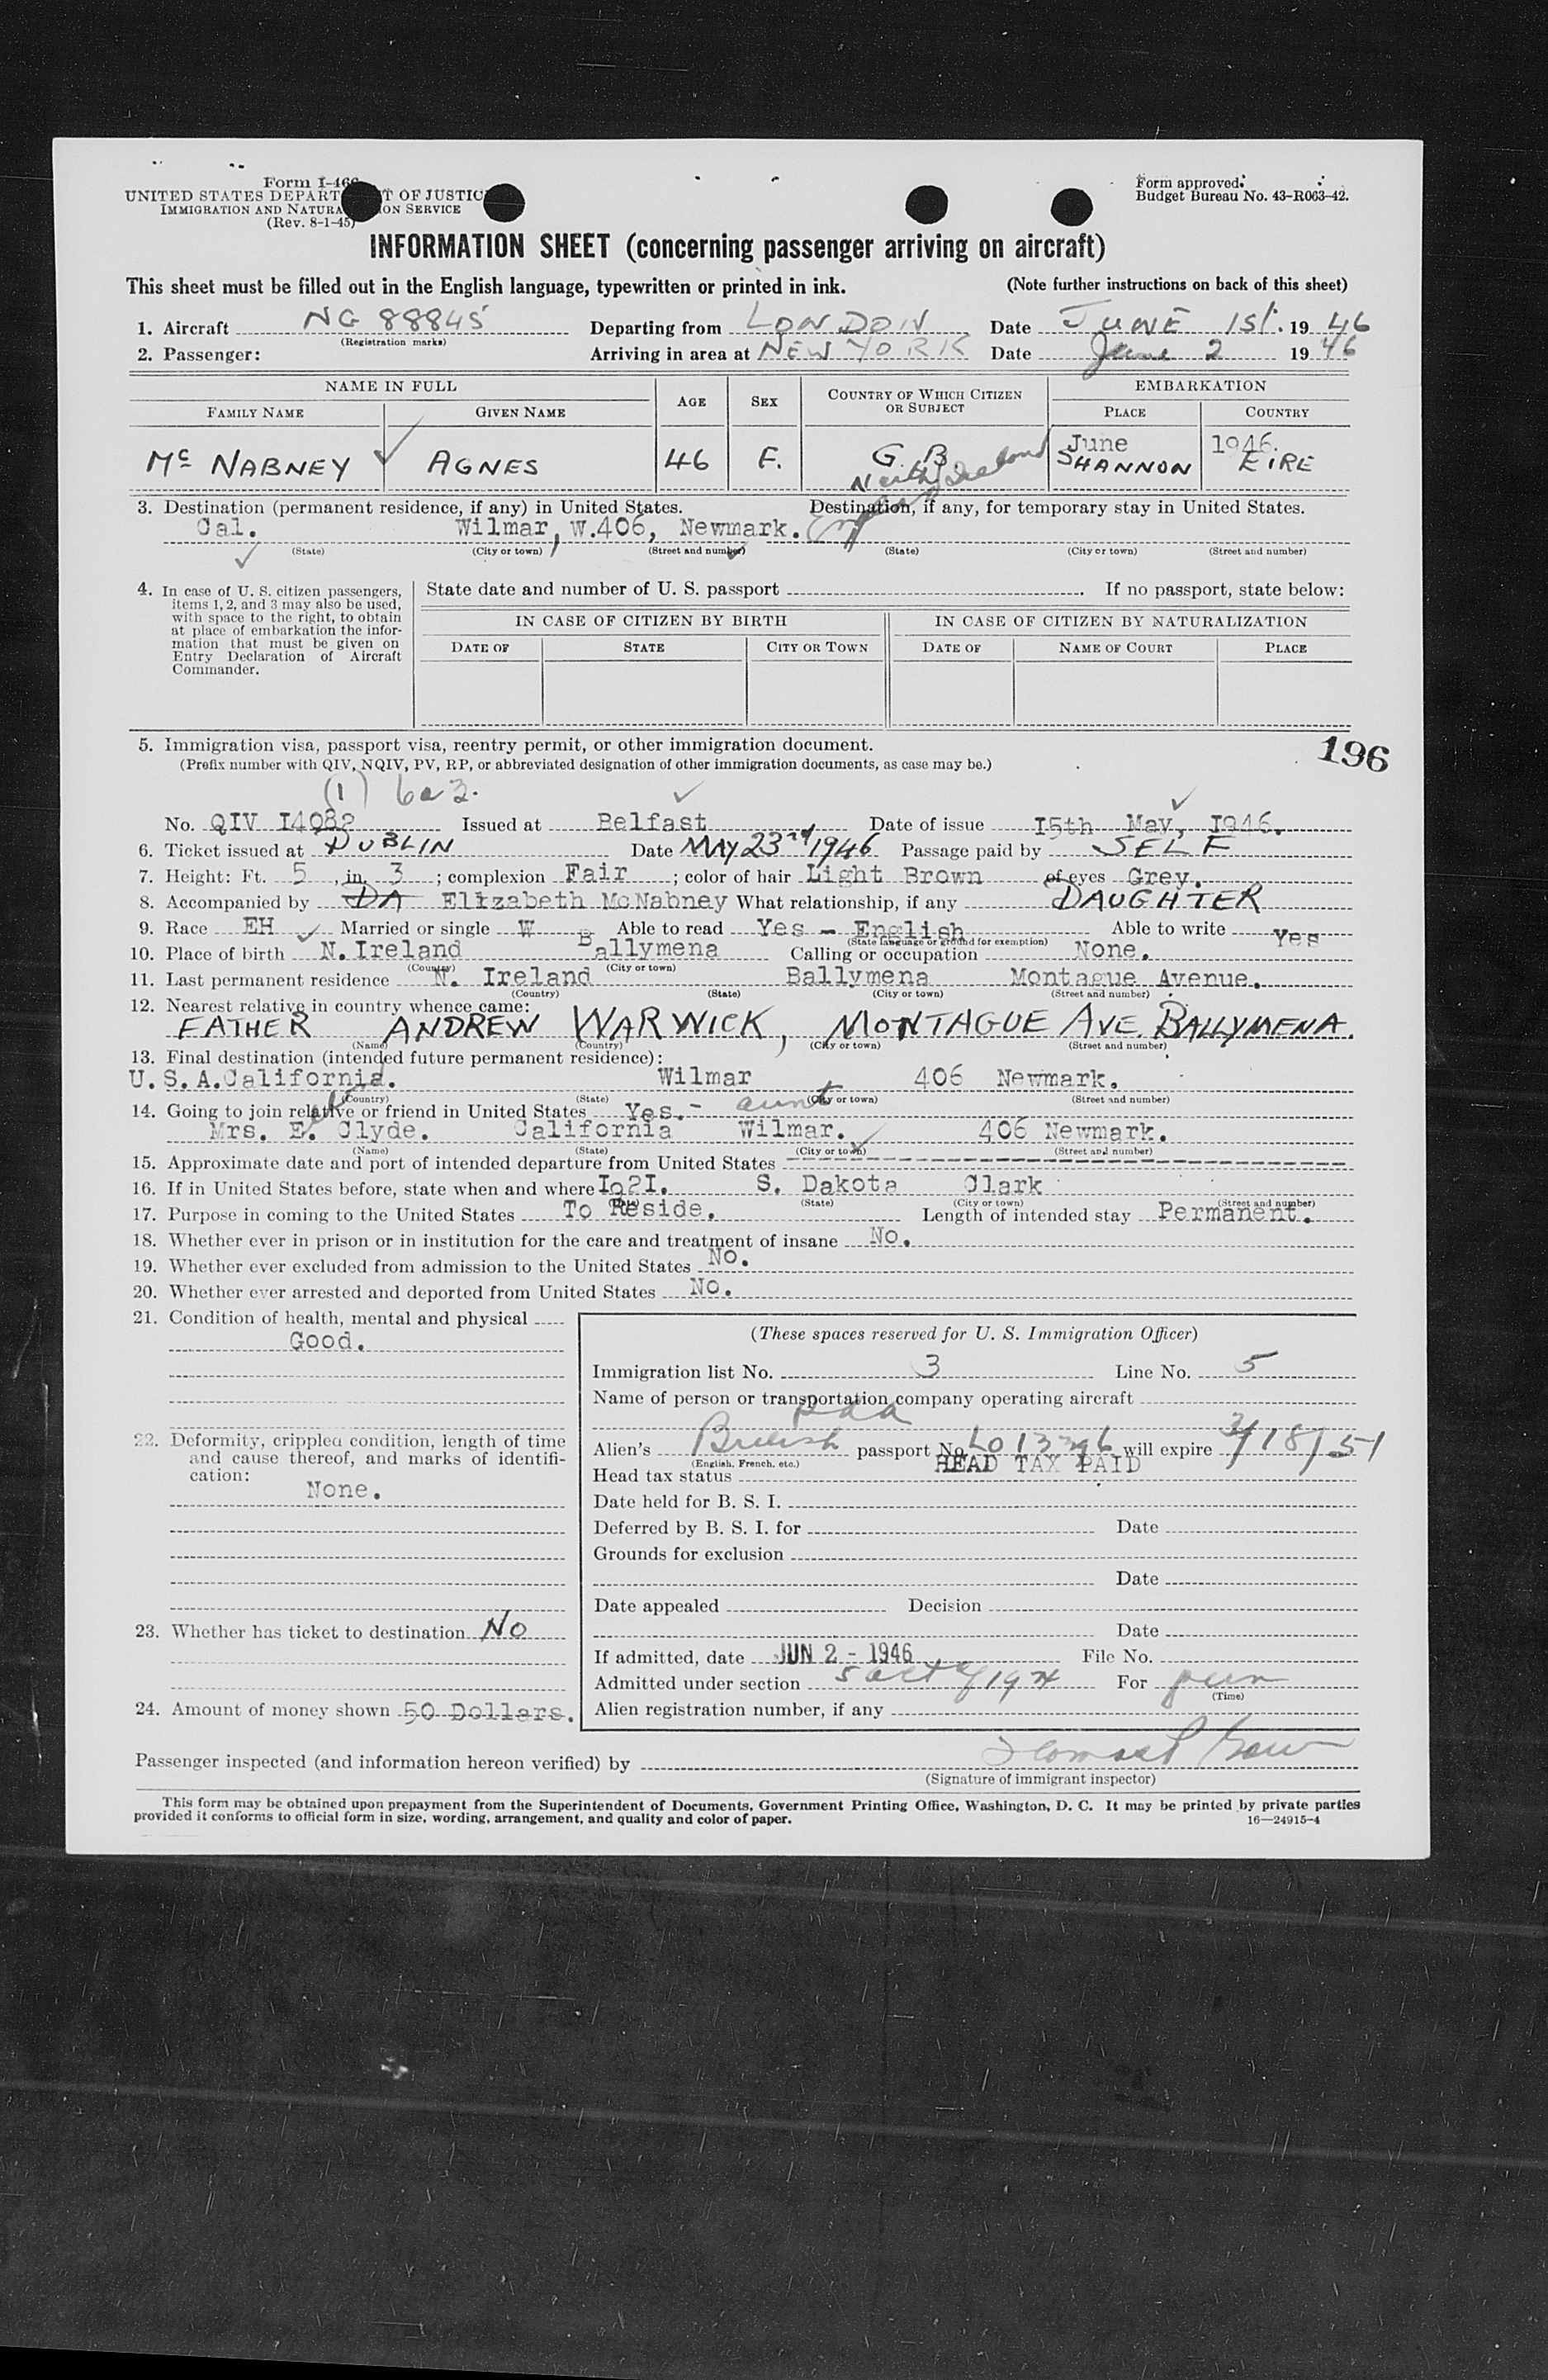 Form I-466
UNITED STATES DEPARTMENT OF JUSTICE
IMMIGRATION AND NATURALIZATION SERVICE
(Rev. 8-1-45)
Form approved.
Budget Bureau No. 43-R063-42.
INFORMATION SHEET (concerning passenger arriving on aircraft)
This sheet must be filled out in the English language, typewritten or printed in ink. (Note further instructions on back of this sheet)
1. Aircraft NC 88845 Departing from LONDON Date JUNE 1st. 1946
(Registration marks)
2. Passenger: Arriving in area at NEW YORK Date June 2 1946
NAME IN FULL AGE SEX COUNTRY OF WHICH CITIZEN OR SUBJECT EMBARKATION
FAMILY NAME GIVEN NAME PLACE COUNTRY
June 1946.
Mc NABNEY AGNES 46 F. G. B. SHANNON EIRE
North Ireland
3. Destination (permanent residence, if any) in United States. Destination, if any, for temporary stay in United States.
Cal. Wilmar, W.406, Newmark.
(State) (City or town) (Street and number) (State) (City or town) (Street and number)
4. In case of U. S. citizen passengers, items 1, 2, and 3 may also be used, with space to the right, to obtain at place of embarkation the information that must be given on Entry Declaration of Aircraft Commander.
State date and number of U. S. passport If no passport, state below:
IN CASE OF CITIZEN BY BIRTH IN CASE OF CITIZEN BY NATURALIZATION
DATE OF STATE CITY OR TOWN DATE OF NAME OF COURT PLACE
5. Immigration visa, passport visa, reentry permit, or other immigration document.
196
(Prefix number with QIV, NQIV, PV, RP, or abbreviated designation of other immigration documents, as case may be.)
(1) 6a3.
No. QIV I4082 Issued at Belfast Date of issue I5th May, I946.
6. Ticket issued at DUBLIN Date MAY 23rd 1946 Passage paid by SELF
7. Height: Ft. 5, in. 3; complexion Fair; color of hair Light Brown of eyes Grey.
8. Accompanied by DA Elizabeth McNabney What relationship, if any DAUGHTER
9. Race EH Married or single W Able to read Yes - English Able to write Yes
(State language or ground for exemption)
10. Place of birth N. Ireland Ballymena Calling or occupation None.
(Country) (City or town)
11. Last permanent residence N. Ireland Ballymena Montague Avenue.
(Country) (State) (City or town) (Street and number)
12. Nearest relative in country whence came:
FATHER ANDREW WARWICK, MONTAGUE AVE. BALLYMENA.
(Name) (Country) (City or town) (Street and number)
13. Final destination (intended future permanent residence):
U.S.A. California. Wilmar 406 Newmark.
(Country) (State) (City or town) (Street and number)
14. Going to join relative or friend in United States Yes. - aunt
Mrs. E. Clyde. California Wilmar. 406 Newmark.
(Name) (State) (City or town) (Street and number)
15. Approximate date and port of intended departure from United States
16. If in United States before, state when and where I92I. S. Dakota Clark
(State) (City or town) (Street and number)
17. Purpose in coming to the United States To Reside. Length of intended stay Permanent.
18. Whether ever in prison or in institution for the care and treatment of insane No.
19. Whether ever excluded from admission to the United States No.
20. Whether ever arrested and deported from United States No.
21. Condition of health, mental and physical
Good.
22. Deformity, crippled condition, length of time and cause thereof, and marks of identification:
None.
23. Whether has ticket to destination No
24. Amount of money shown 50 Dollars.
(These spaces reserved for U. S. Immigration Officer)
Immigration list No. 3 Line No. 5
Name of person or transportation company operating aircraft
paa
Alien's British passport No. LO 13396 will expire 3/18/51
(English, French, etc.)
Head tax status HEAD TAX PAID
Date held for B. S. I.
Deferred by B. S. I. for Date
Grounds for exclusion
Date
Date appealed Decision
Date
If admitted, date JUN 2 - 1946 File No.
Admitted under section 5 act of 1924 For perm
(Time)
Alien registration number, if any
Passenger inspected (and information hereon verified) by
(Signature of immigrant inspector)
This form may be obtained upon prepayment from the Superintendent of Documents, Government Printing Office, Washington, D. C. It may be printed by private parties
provided it conforms to official form in size, wording, arrangement, and quality and color of paper. 16—24915-4